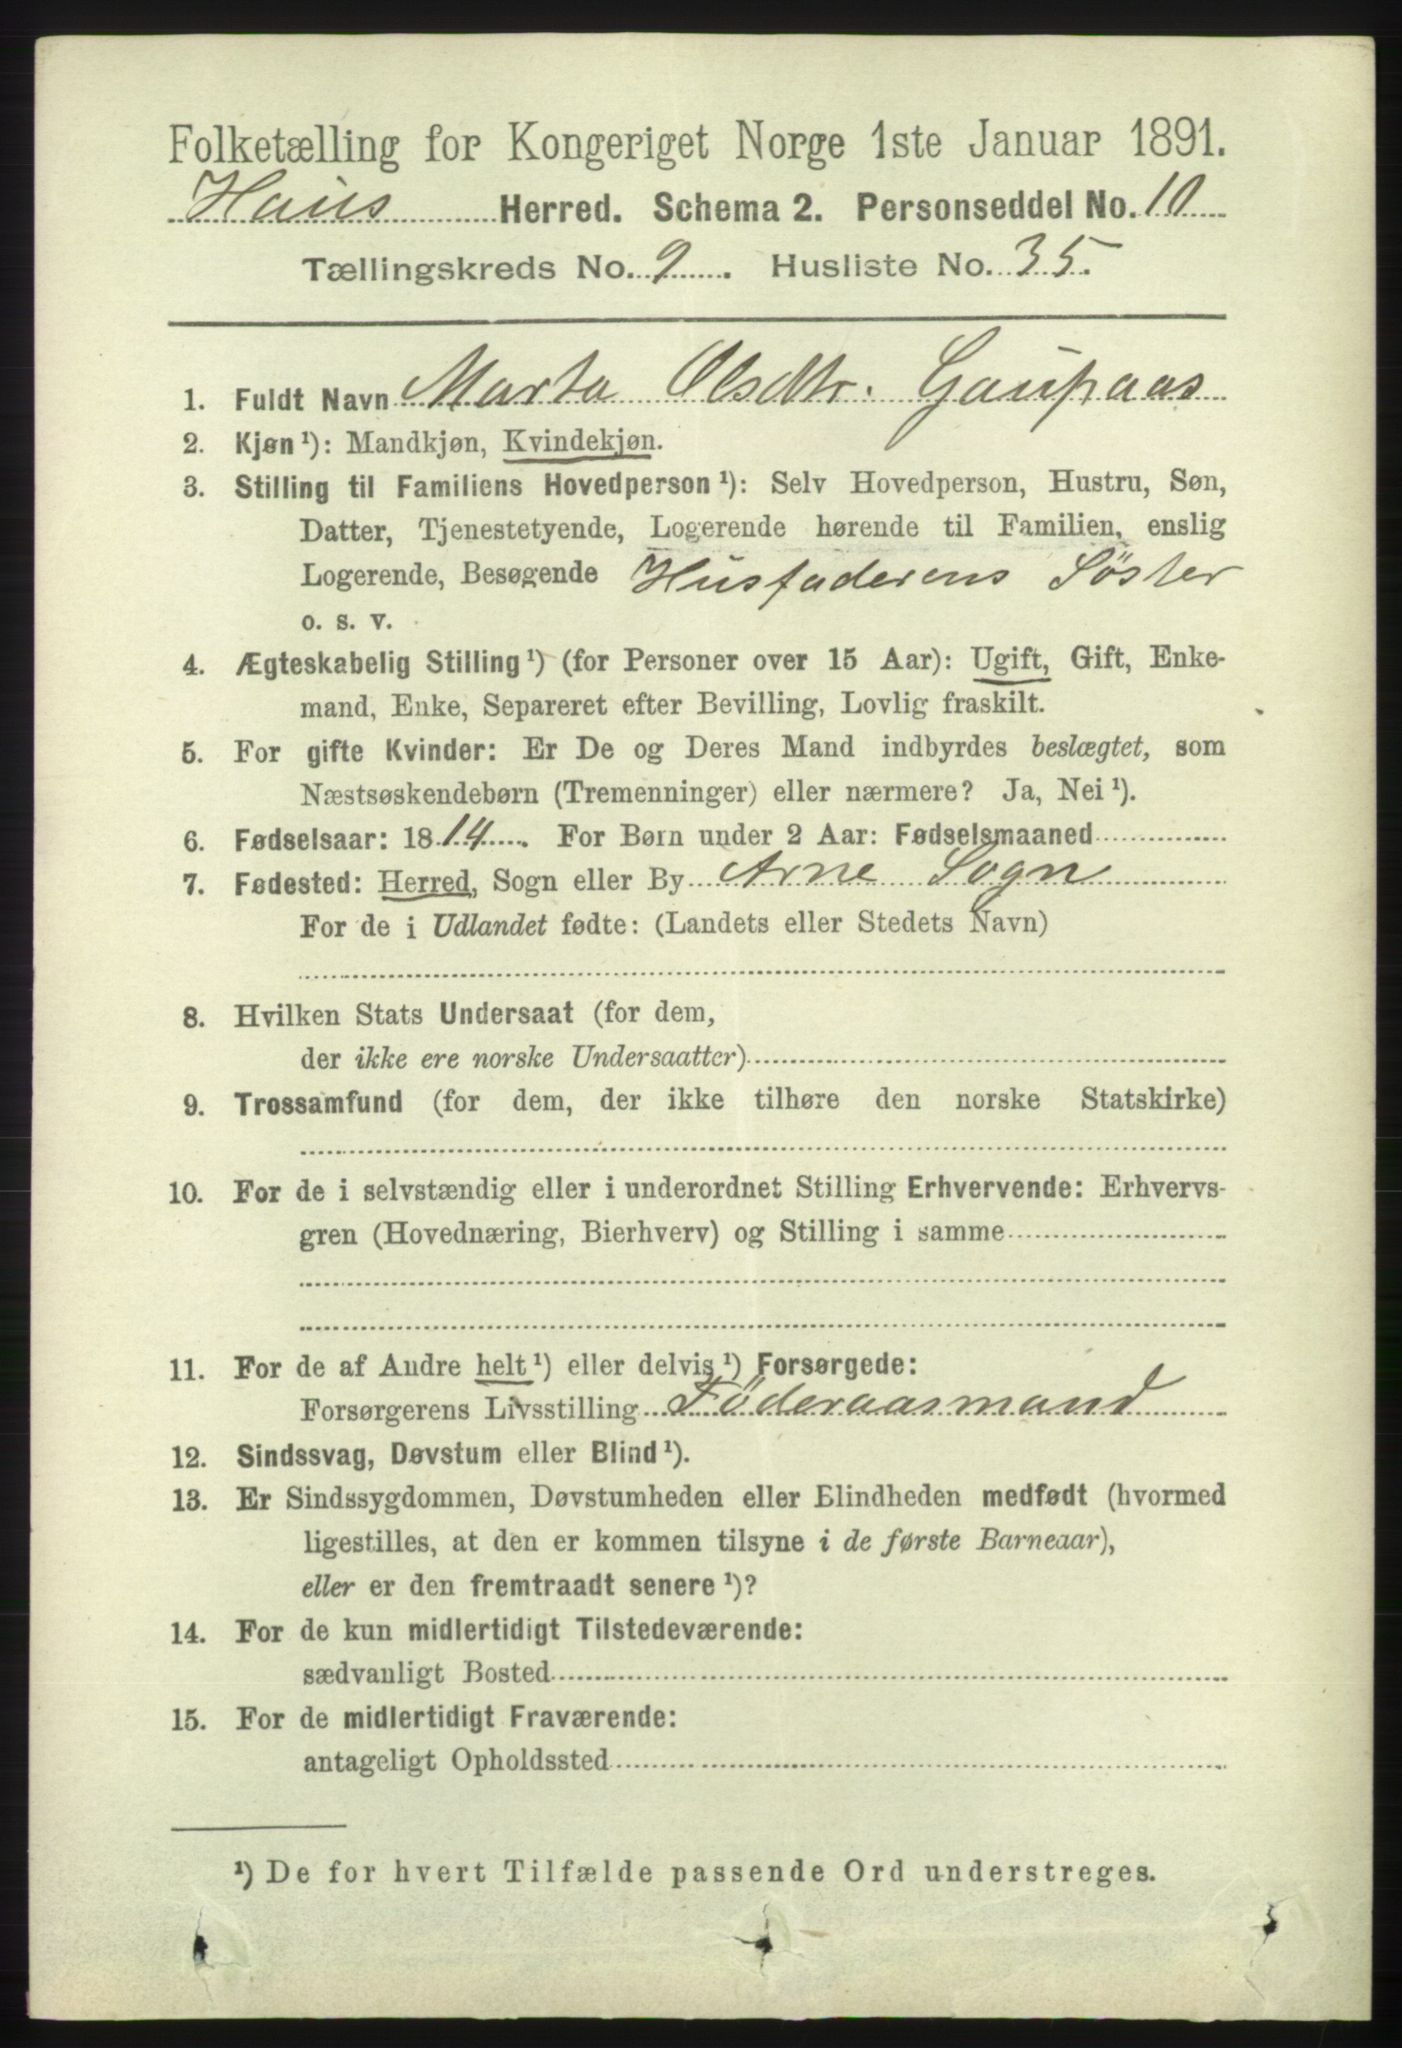 Folketælling for Kongeriget Norge 1ste Januar 1891.
Haus Herred. Schema 2. Personseddel No. 10
Tællingskreds No. 9. Husliste No. 35.
1. Fuldt Navn Marta Olsdtr. Gaupaas
2. Kjøn¹): Mandkjøn, Kvindekjøn.
3. Stilling til Familiens Hovedperson¹): Selv Hovedperson, Hustru, Søn,
Datter, Tjenestetyende, Logerende hørende til Familien, enslig
Logerende, Besøgende Husfaderens Söster
o. s. v.
4. Ægteskabelig Stilling¹) (for Personer over 15 Aar): Ugift, Gift, Enke-
mand, Enke, Separeret efter Bevilling, Lovlig fraskilt.
5. For gifte Kvinder: Er De og Deres Mand indbyrdes beslægtet, som
Næstsøskendebørn (Tremenninger) eller nærmere? Ja, Nei¹).
6. Fødselsaar: 1814. For Børn under 2 Aar: Fødselsmaaned
7. Fødested: Herred, Sogn eller By Arne Sogn
For de i Udlandet fødte: (Landets eller Stedets Navn)
8. Hvilken Stats Undersaat (for dem,
der ikke ere norske Undersaatter)
9. Trossamfund (for dem, der ikke tilhøre den norske Statskirke)
10. For de i selvstændig eller i underordnet Stilling Erhvervende: Erhvervs-
gren (Hovednæring, Bierhverv) og Stilling i samme
11. For de af Andre helt¹) eller delvis¹) Forsørgede:
Forsørgerens Livsstilling Föderaasmand
12. Sindssvag, Døvstum eller Blind¹).
13. Er Sindssygdommen, Døvstumheden eller Blindheden medfødt (hvormed
ligestilles, at den er kommen tilsyne i de første Barneaar),
eller er den fremtraadt senere¹)?
14. For de kun midlertidigt Tilstedeværende:
sædvanligt Bosted
15. For de midlertidigt Fraværende:
antageligt Opholdssted
¹) De for hvert Tilfælde passende Ord understreges.